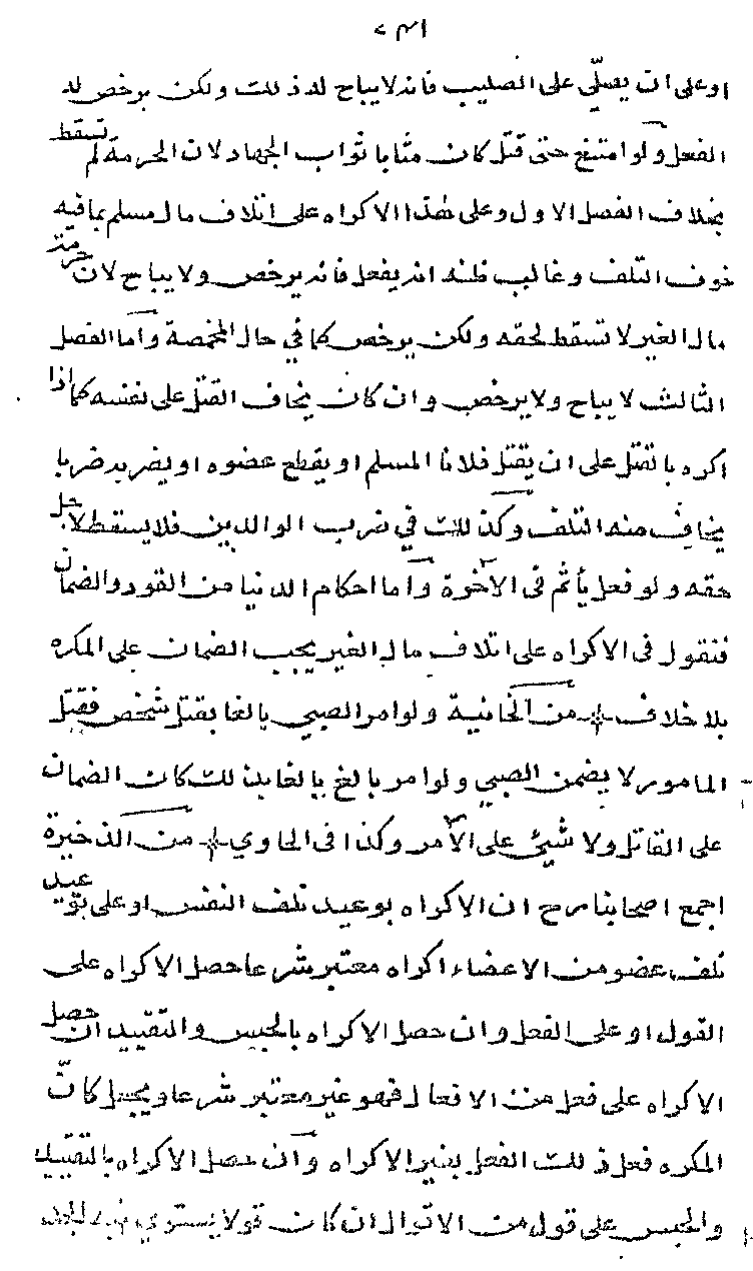 او على ان يصلّي على الصليب فانه لا يباح له ذلك ولكن يرخص له
الفعل ولو امتنع حتى قتل كان مثابا ثواب الجهاد لان الحرمة لم تسقط
بخلاف الفصل الاول وعلى هذا الاكراه على اتلاف مال مسلم بما فيه
خوف التلف وغالب ظنه انه يفعل فانه يرخص ولا يباح لان حرمة
مال الغير لا تسقط لحقه ولكن يرخص كما في حال المخمصة وأما الفصل
الثالث لا يباح ولا يرخص وان كان يخاف القتل على نفسه كما اذا
أكره بالقتل على ان يقتل فلانا المسلم او يقطع عضوه او يضربه ضربا
يخاف منه التلف وكذلك في ضرب الوالدين فلا يسقط لاجل
حقه ولو فعل يأثم فى الآخرة وأما احكام الدنيا من القود والضمان
فنقول فى الاكراه على اتلاف مال الغير يجب الضمان على المكره
بلا خلاف من الخانية ولو امر الصبي بالغا بقتل شخص فقتل
المامور لا يضمن الصبي ولو امر بالغ بالغا بذلك كان الضمان
على القاتل ولا شيئ على الآمر وكذا فى الحاوي من الذخيرة
اجمع اصحابنا رح ان الاكراه بوعيد تلف النفس او على توعيد
تلف عضو من الاعضاء اكراه معتبر شرعا حصل الاكراه على
القول او على الفعل وان حصل الاكراه بالحبس والتقييد ان حصل
الاكراه على فعل من الافعال فهو غير معتبر شرعا ويجعل كانّ
المكره فعل ذلك الفعل بغير الاكراه وان حصل الاكراه بالتقييد
والحبس على قول من الاقوال ان كان قولا يستوي فيه الجد